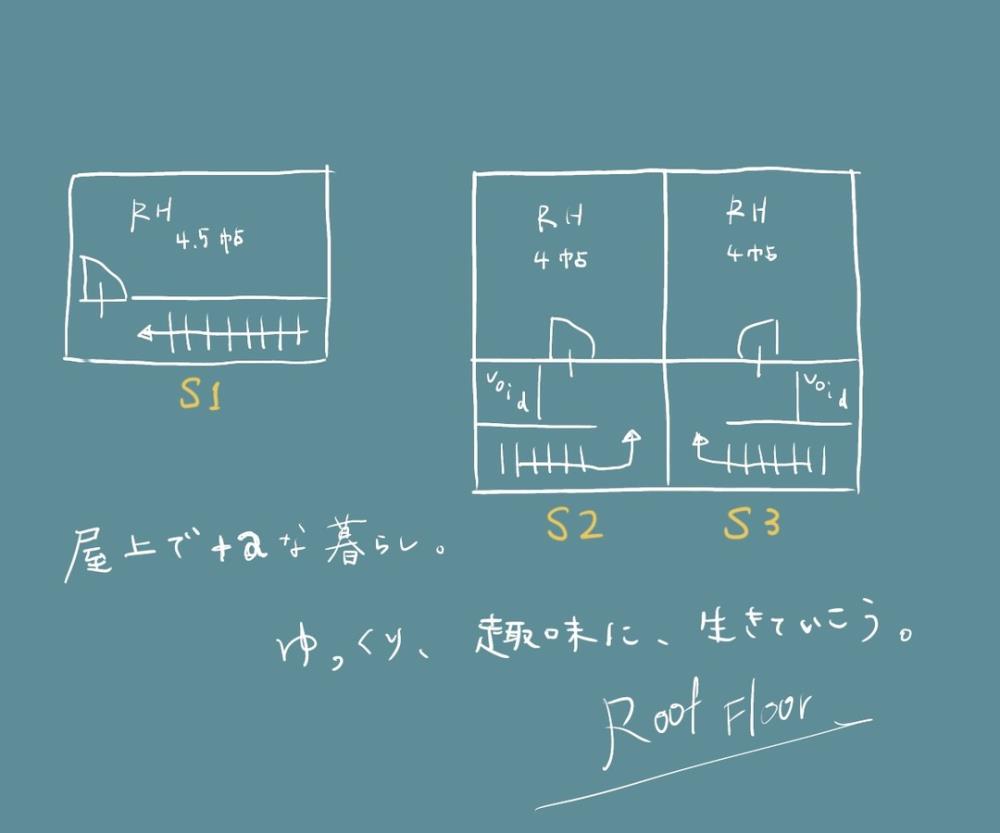 RH
4.5帖
S1
RH
4帖
void
S2
RH
4帖
void
S3
屋上で+aな暮らし。
ゆっくり、趣味に、生きていこう。
Roof Floor